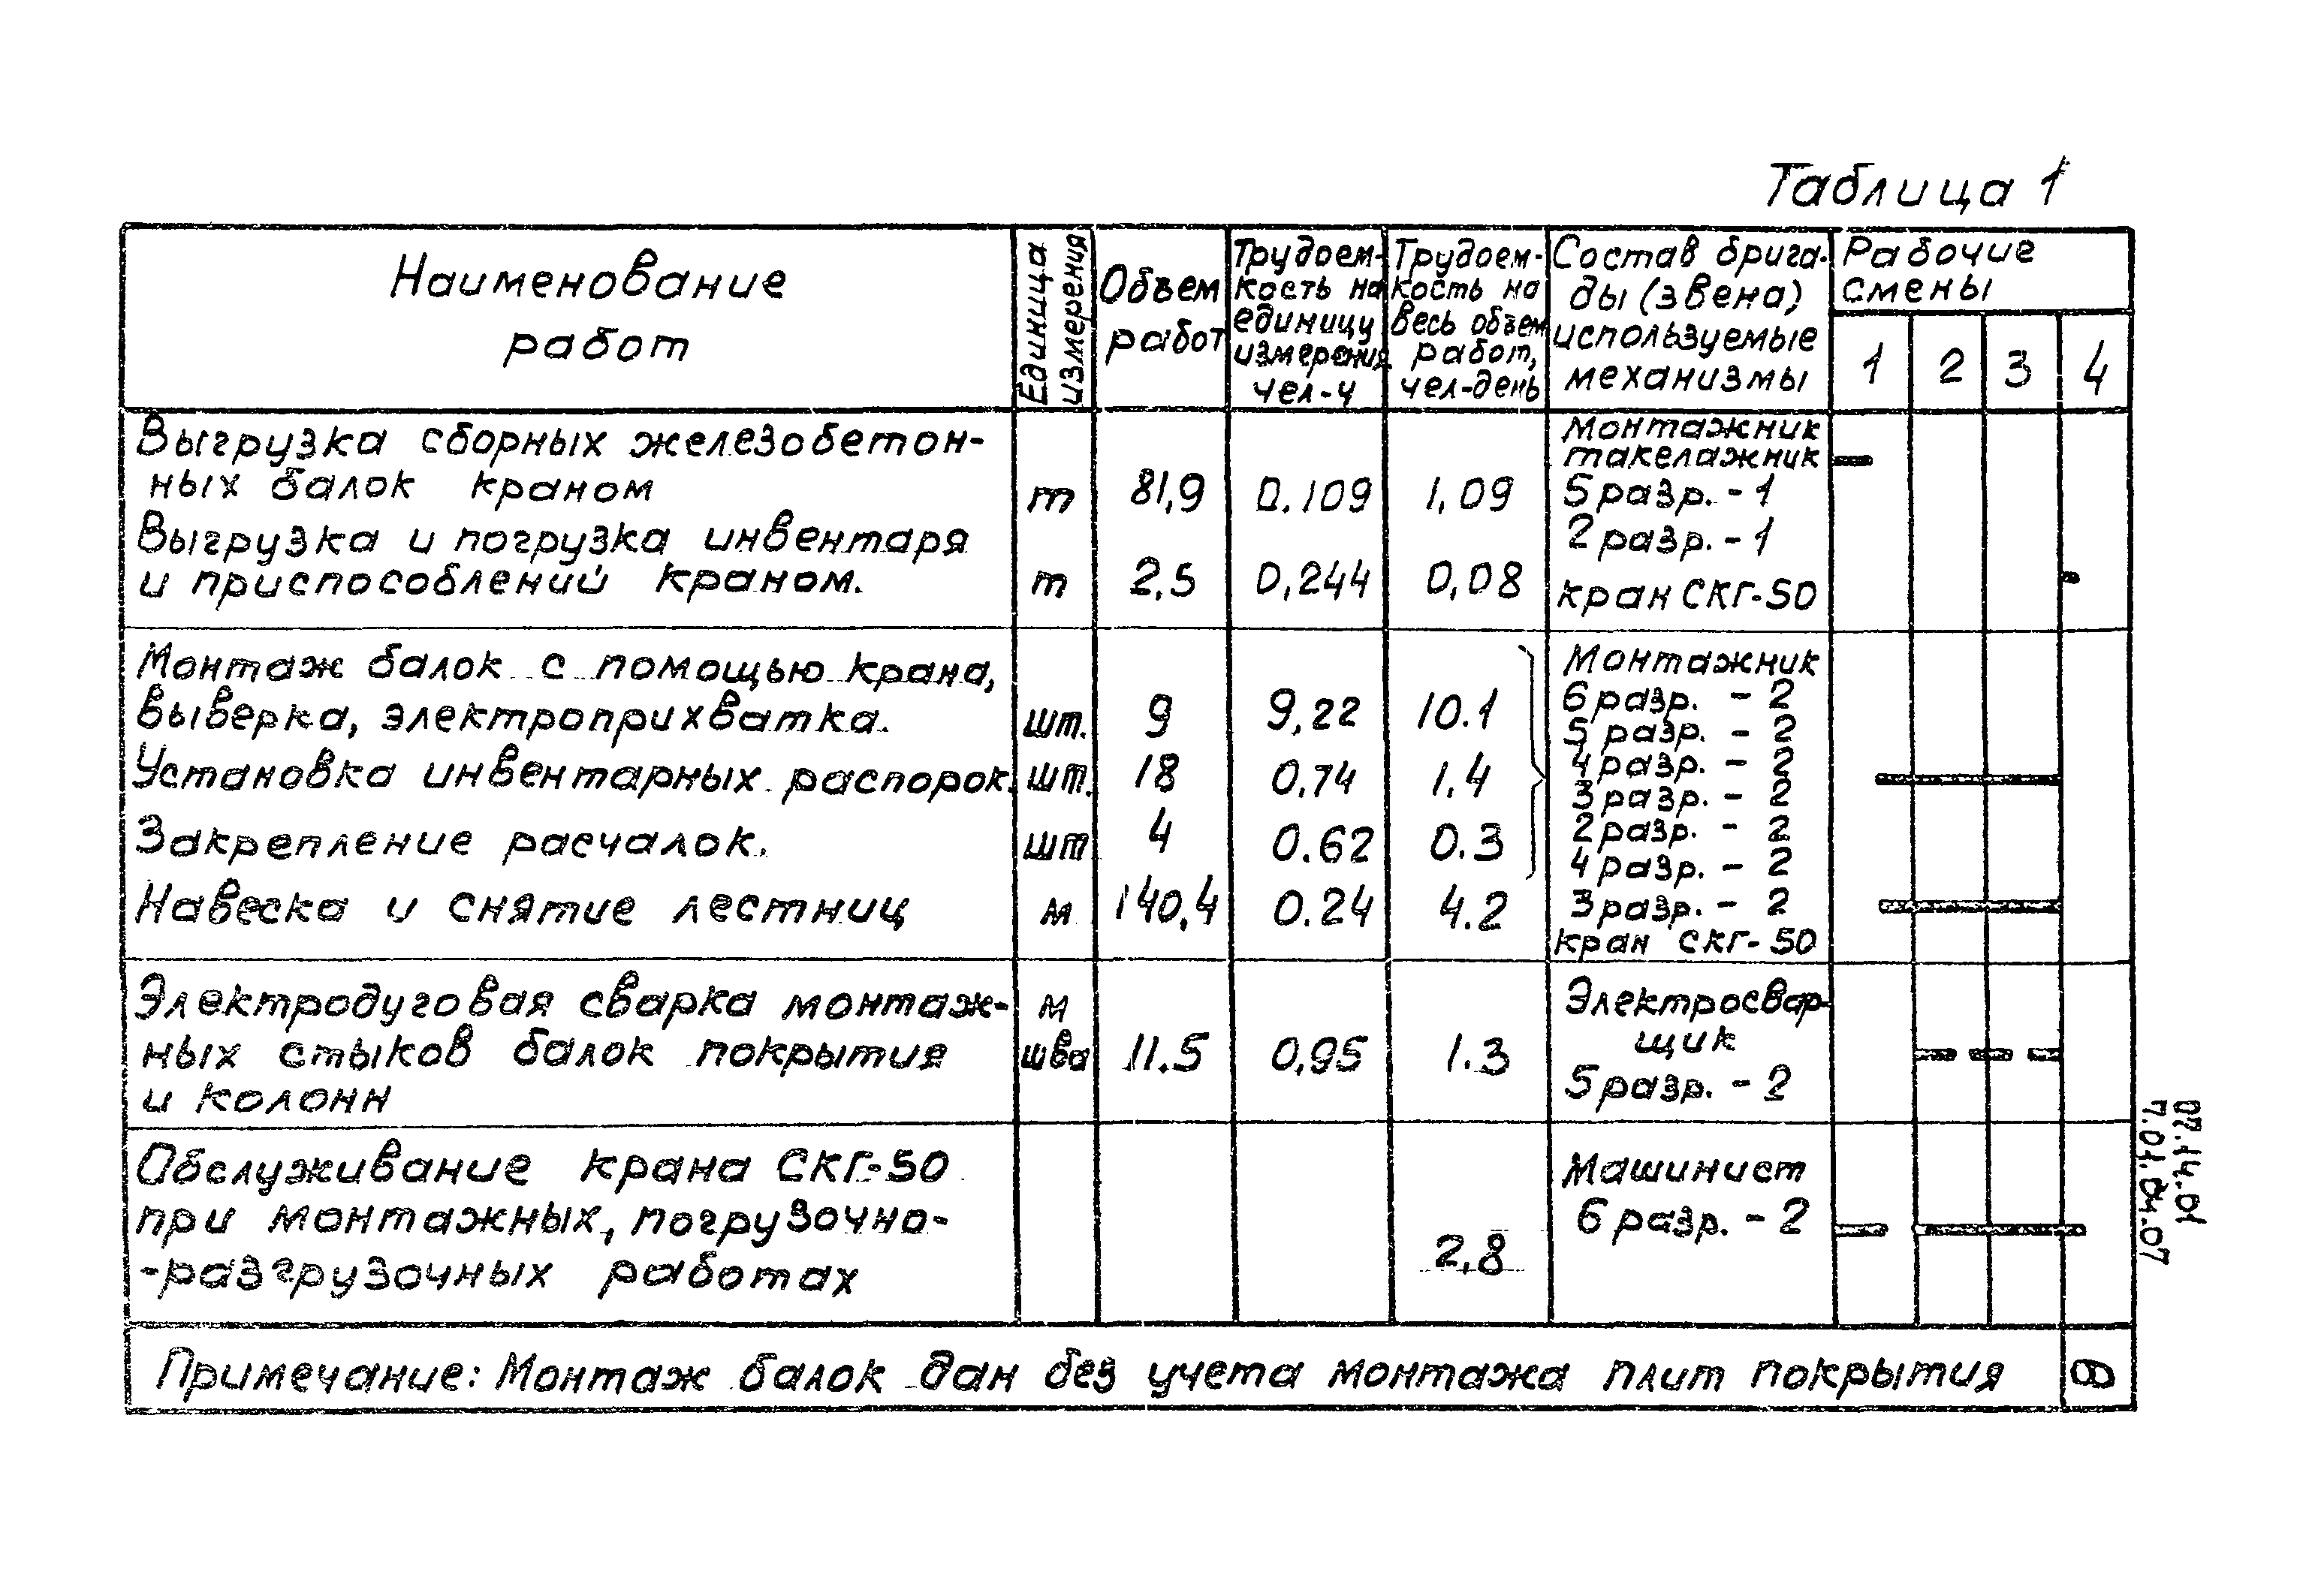 Таблица 1
Наименование
работ
Единица
измерения
Объем
работ
Трудоем-
кость на
единицу
измерения
чел-ч
Трудоем-
кость на
весь объем
работ,
чел-день
Состав брига-
ды (звена)
используемые
механизмы
Рабочие
смены
1 2 3 4
Выгрузка сборных железобетон-
ных балок краном
т 81,9 0.109 1,09
Выгрузка и погрузка инвентаря
и приспособлений краном.
т 2,5 0,244 0,08
Монтажник
такелажник
5 разр. - 1
2 разр. - 1
кран СКГ-50
Монтаж балок с помощью крана,
выверка, электроприхватка.
шт. 9 9,22 10.1
Установка инвентарных распорок.
шт. 18 0,74 1,4
Закрепление расчалок.
шт 4 0.62 0.3
Навеска и снятие лестниц
м 140,4 0.24 4.2
Монтажник
6 разр. - 2
5 разр. - 2
4 разр. - 2
3 разр. - 2
2 разр. - 2
4 разр. - 2
3 разр. - 2
кран СКГ-50
Электродуговая сварка монтаж-
ных стыков балок покрытия
и колонн
м
шва
11.5 0,95 1.3
Электросвар-
щик
5 разр. - 2
Обслуживание крана СКГ-50
при монтажных, погрузочно-
-разгрузочных работах
2,8
Машинист
6 разр. - 2
Примечание: Монтаж балок дан без учета монтажа плит покрытия
07.14.01
7.01.04.07